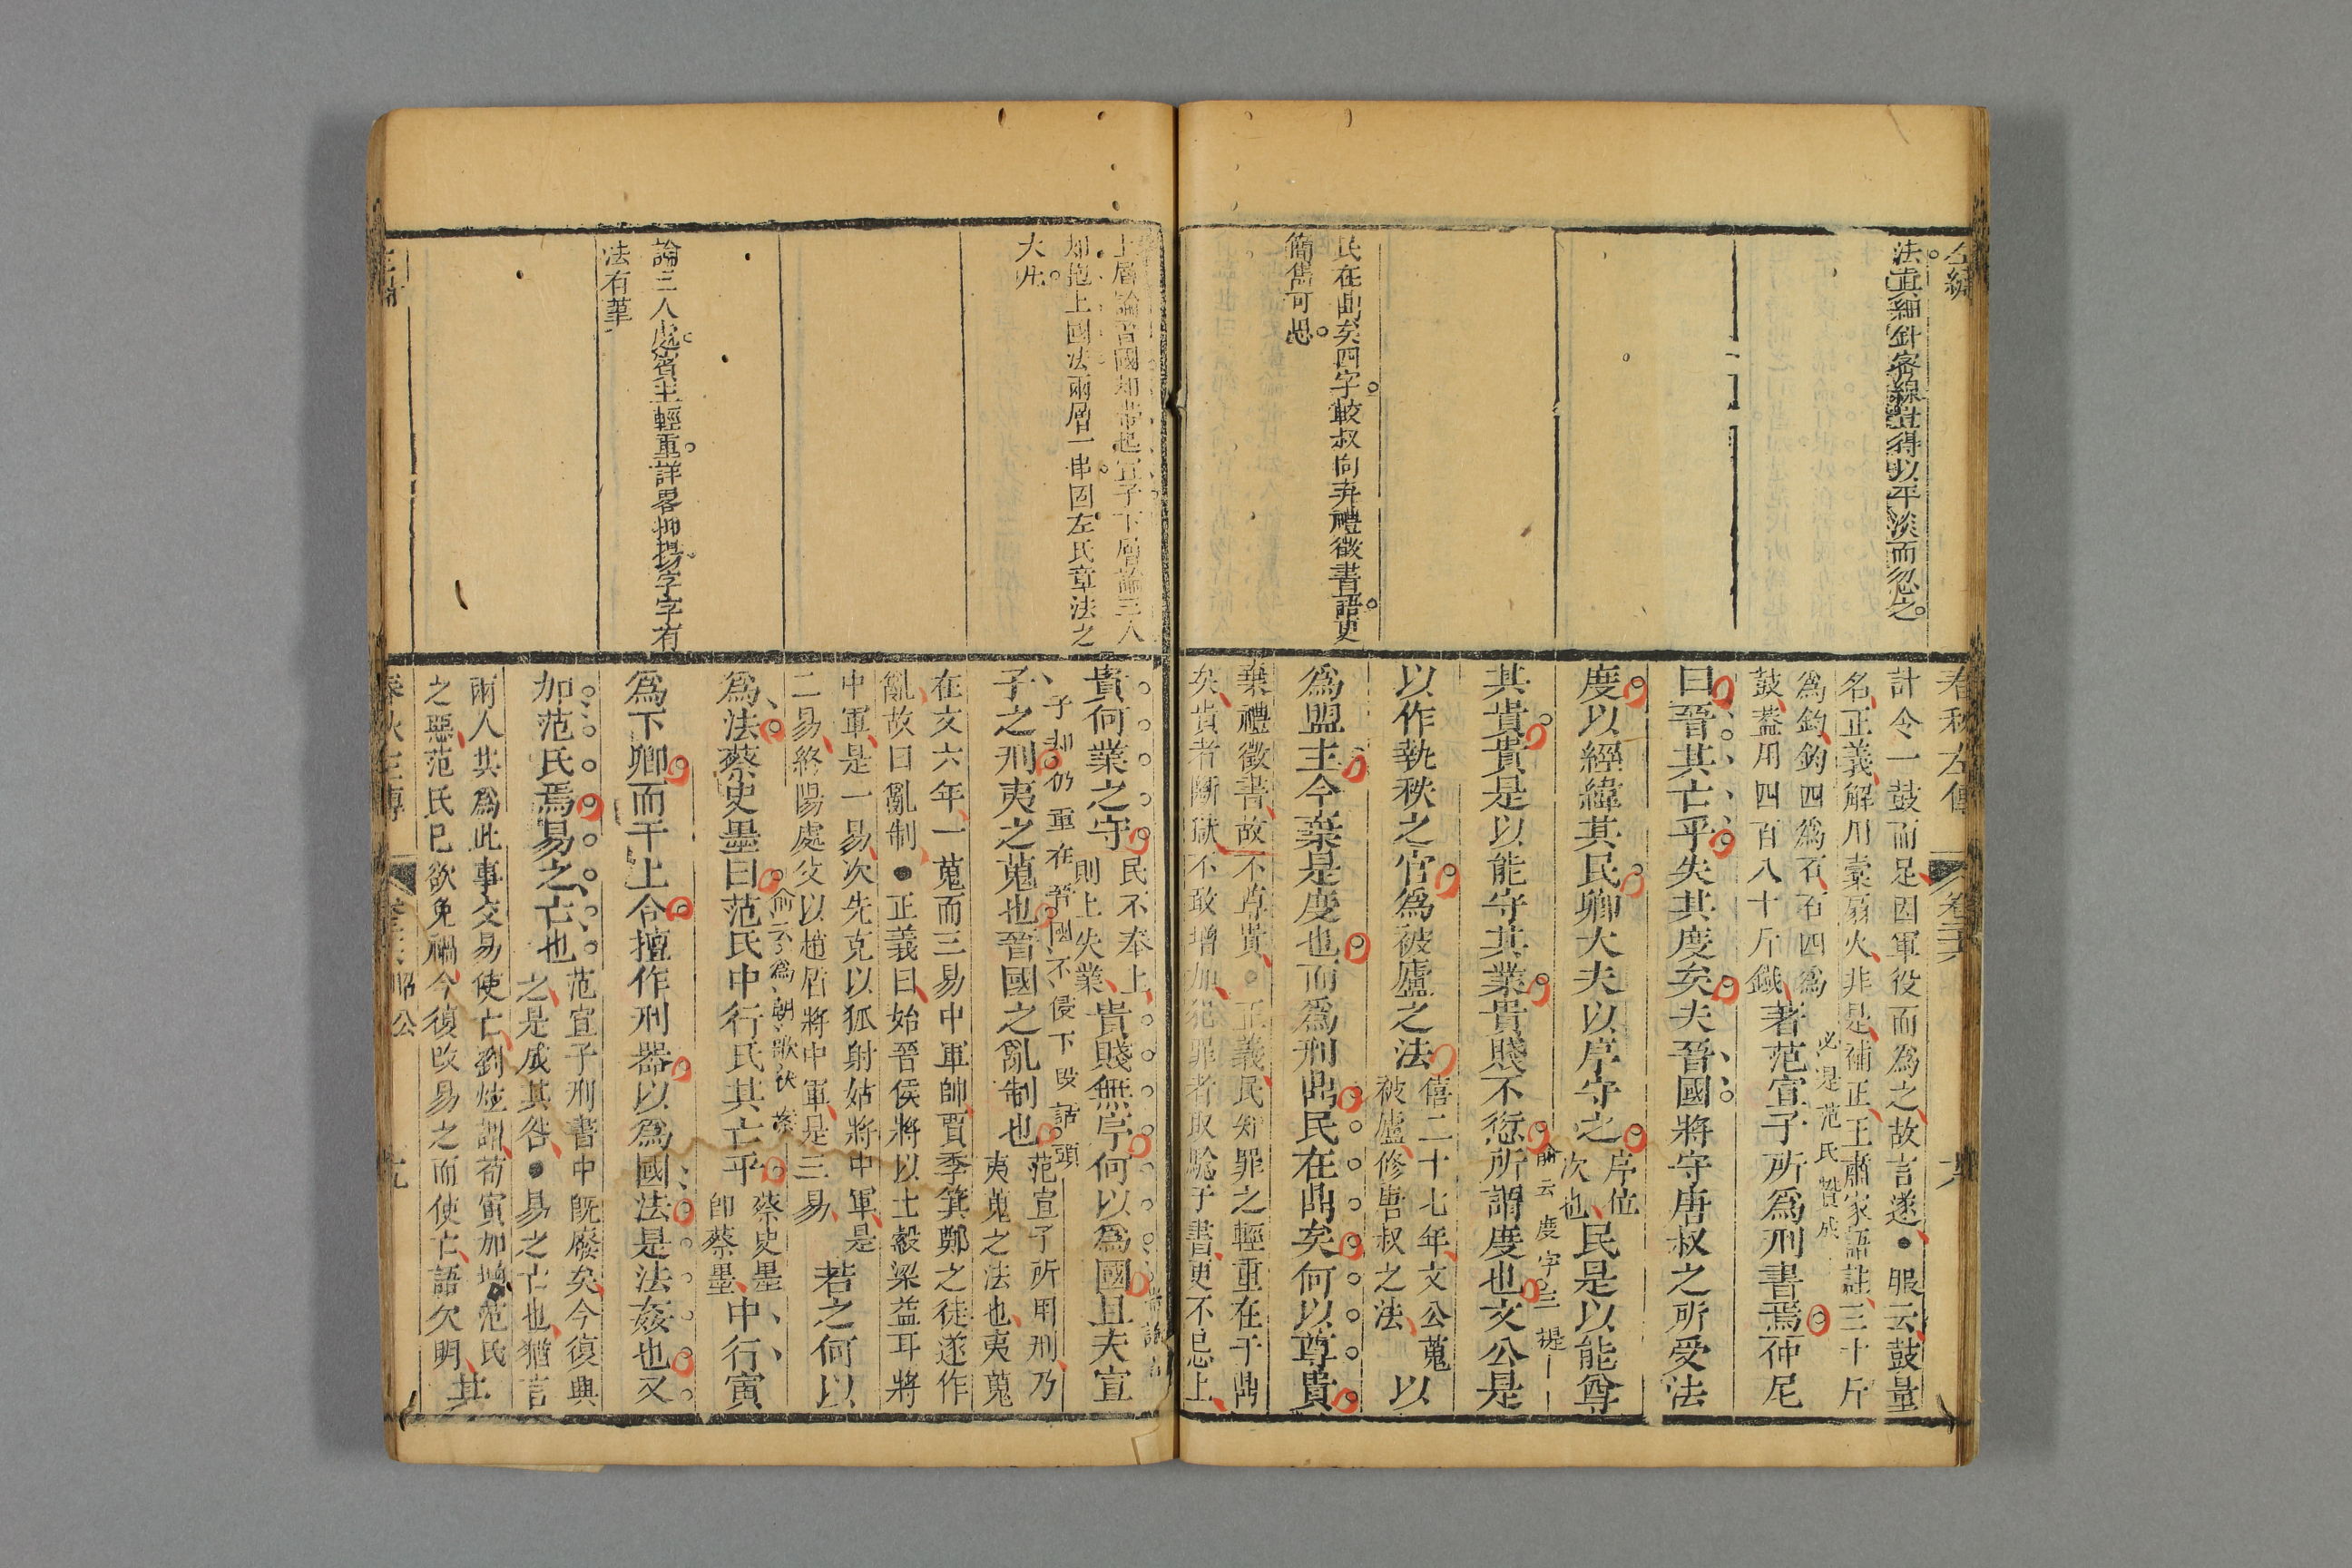 法眞細針密線豈得以平淡而忽之
民在鼎矣四字較叔向弃禮徵書語更
簡雋可思
春秋左傳
卷二六
計令一鼓而足因軍役而爲之故言遂●服云鼓量
名正義解用橐扇火非是補正王肅家語註三十斤
爲鈞鈞四爲石石四爲
鼓蓋用四百八十斤鐵
必是范氏贊成
著范宣子所爲刑書焉仲尼
曰晉其亡乎失其度矣夫晉國將守唐叔之所受法
度以經緯其民卿大夫以序守之
序位
次也
民是以能尊
俞云度字三提
其貴貴是以能守其業貴賤不愆所謂度也文公是
以作執秩之官爲被廬之法
僖二十七年文公蒐
被廬修唐叔之法
以
爲盟主今棄是度也而爲刑鼎民在鼎矣何以尊貴
棄禮徵書故不尊貴○正義民知罪之輕重在于鼎
矣貴者斷獄不敢增加犯罪者取驗于書更不忌上
上層論晉國却帶起宣子下層論三人
却抱上國法兩層一串固左氏章法之
大凡
論三人處賓主輕重詳畧抑揚字字有
法有筆
貴何業之守
民不奉上
則上失業
貴賤無序何以爲國且夫宣
子却仍重在晉國不侵下段話頭
子之刑夷之蒐也晉國之亂制也
范宣子所用刑乃
夷蒐之法也夷蒐
在文六年一蒐而三易中軍帥賈季箕鄭之徒遂作
亂故曰亂制●正義曰始晉侯將以士縠梁益耳將
中軍是一易次先克以狐射姑將中軍是
二易終陽處父以趙盾將中軍是三易
若之何以
爲法蔡史墨曰范氏中行氏其亡乎
蔡史墨
即蔡墨
中行寅
爲下卿而干上令擅作刑器以爲國法是法姦也又
加范氏焉易之亡也
范宣子刑書中既廢矣今復興
之是成其咎●易之亡也猶言
兩人其爲此事交易使亡劉炫謂荀寅加增范氏
之惡范氏已欲免禍今復改易之而使亡語欠明
其
春秋左傳
昭公